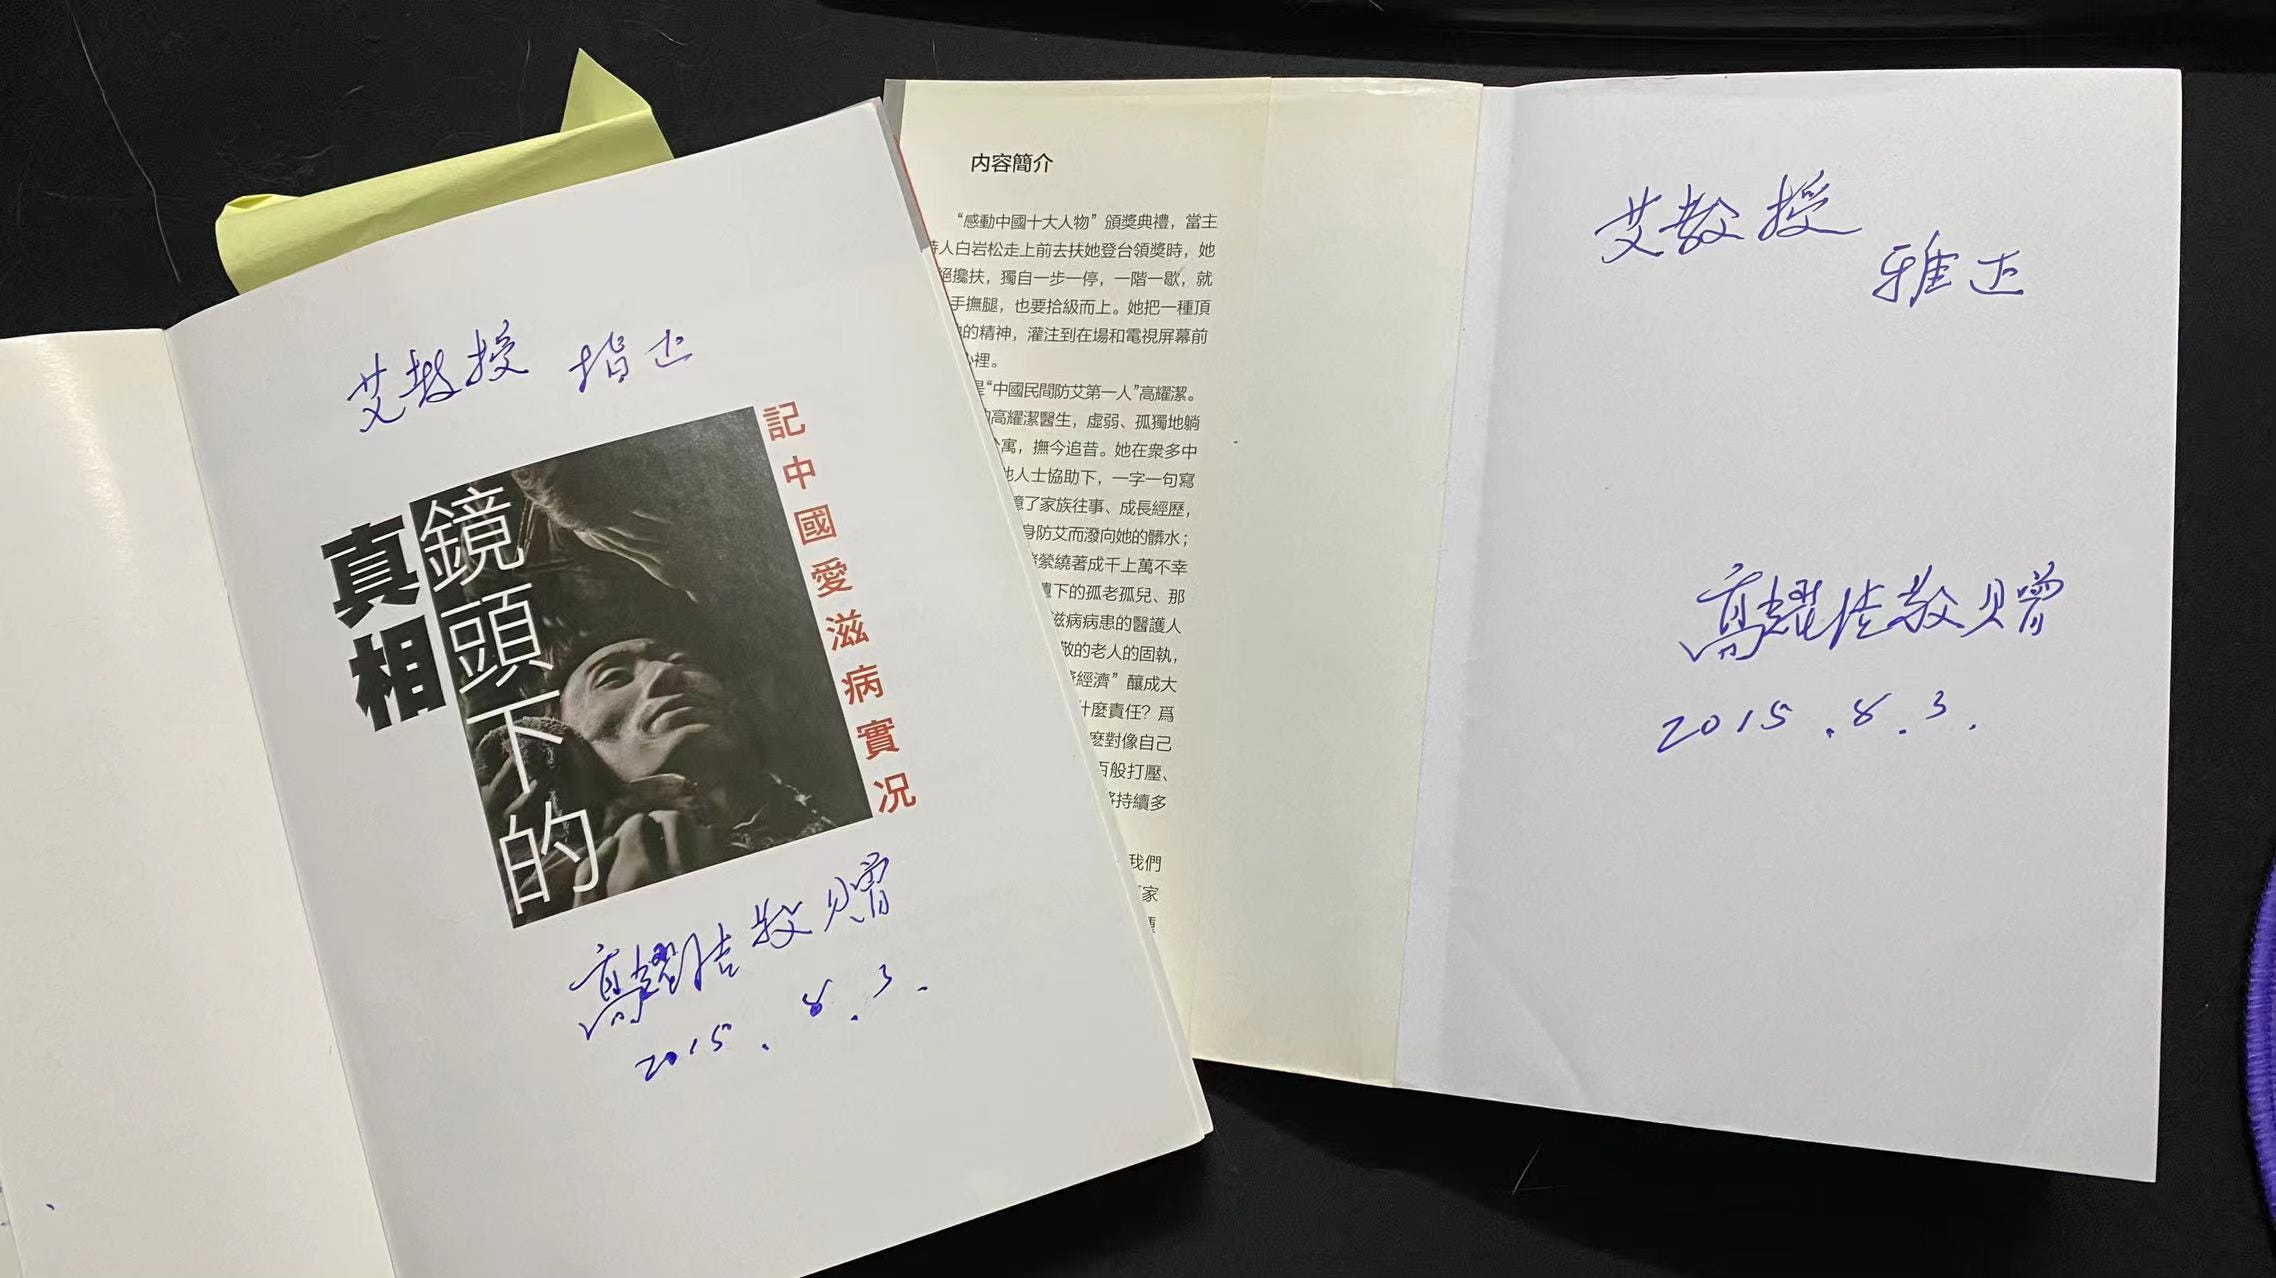 艾教授 指正
鏡頭下的
真相
記中國愛滋病實況
高耀洁敬贈
2015.8.3.
内容簡介
“感動中國十大人物”頒獎典禮，當主
人白岩松走上前去扶她登台領獎時，她
絕攙扶，獨自一步一停，一階一歇，就
手撫腿，也要拾級而上。她把一種頂
的精神，灌注到在場和電視屏幕前
裡。
是“中國民間防艾第一人”高耀潔。
高耀潔醫生，虛弱、孤獨地躺
寓，撫今追昔。她在衆多中
他人士協助下，一字一句寫
憶了家族往事、成長經歷，
身防艾而潑向她的髒水；
縈繞著成千上萬不幸
遺下的孤老孤兒、那
滋病病患的醫護人
敬的老人的固執，
經濟”釀成大
什麼責任？爲
麽對像自己
百般打壓、
將持續多
我們
家
艾教授
雅正
高耀洁敬贈
2015.8.3.